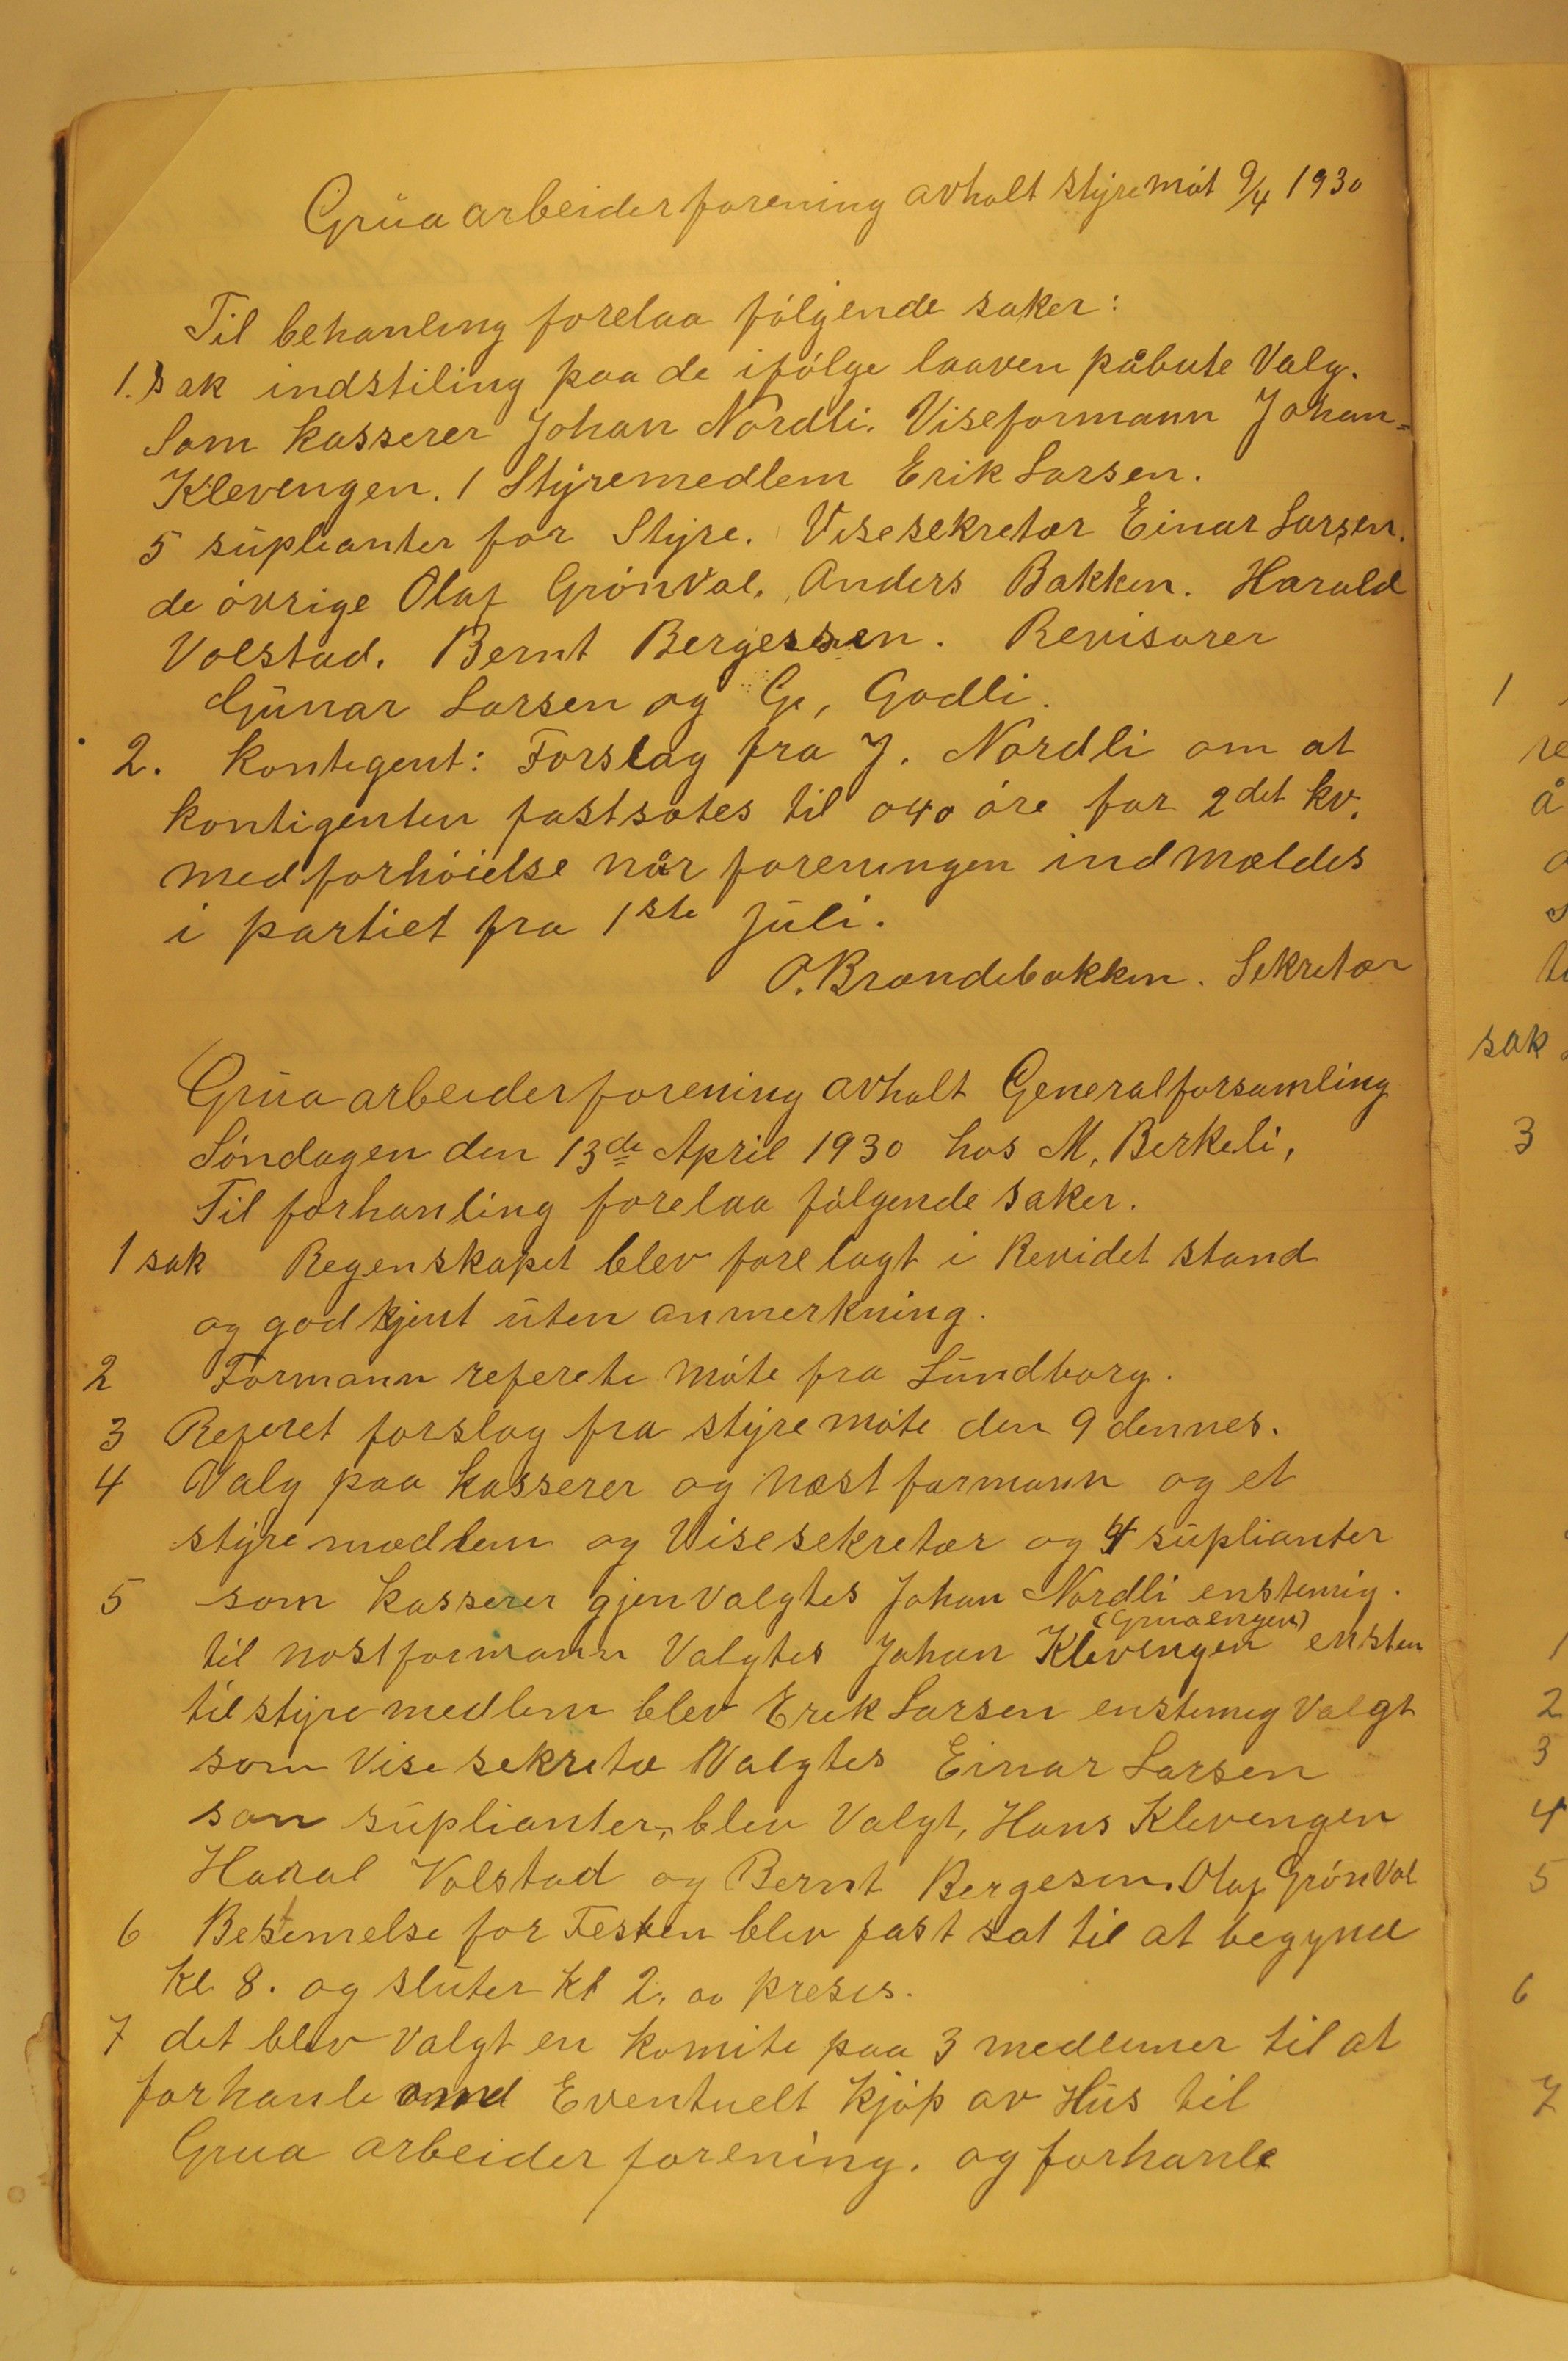 Grua arbeiderforening avholt styremöt 9/4 1930
Til behanling forelaa fölgende saker:
1. sak indstiling paa de ifölge laaven påbute Valg.
Som kasserer Johan Nordli. Viseformann Johan=
Klevengen. 1 Styremedlem Erik Larsen.
5 suplianter for Styre. Visesekretær Einar Larsen.
de övrige Olaf GrönVol. Anders Bakken. Harald
Volstad. Bernt Bergessen. Revisorer
Gunar Larsen og G, Godli.
2. Kontigent: Forslag fra J. Nordli om at
kontigenten fastsætes til 040 öre for 2det kv.
med forhöielse når foreningen indmældes
i partiet fra 1ste Juli.
O. Brændebakken. Sekretær
Grua arbeiderforening avholt Generalforsamling
Söndagen den 13de April 1930 hos M. Berkeli,
Til forhanling forelaa fölgende saker.
1 sak Regenskapet blev forelagt i Revidet stand
og godkjent uten anmerkning.
2 Formann referete möte fra Lundborg.
3 Referet forslag fra styremöte den 9 dennes.
4 Valg paa kasserer og næstformann og et
styremedlem og Visesekretær og 4 suplianter
5 som kasserer gjenvalgtes Johan Nordli enstemig.
(Gruaengen)
til næstformann Valgtes Johan Klevengen enstem
til styremedlem blev Erik Larsen enstemig Valgt
som Vise sekretæ Valgtes Einar Larsen
som suplianter, blev Valgt, Hans Klevengen
Haral Volstad og Bernt Bergesen. Olaf GrönVol
6 Bestemelse for Festen blev fast sat til at begynde
Kl 8. og sluter Kl 2. oo preses.
7 det blev Valgt en komite paa 3 medlemer til at
forhanle om Eventuelt kjöp av Hus til
Grua arbeider forening. og forhanle
1
re
å
sak
3
1
2
3
4
5
6
7